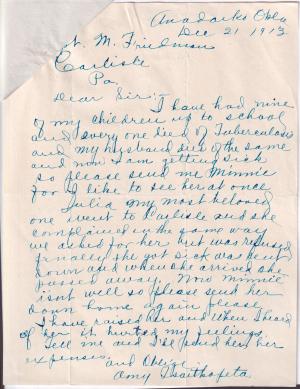 Anadarko Okla
Dec 21 1912
M. Friedman
Carlisle
Pa.
Dear Sir:-
I have had nine
of my children up to school
and every one died of Tuberculosis
and my husband died of the same
and now I am getting sick
so please send me Minnie
for I like to see her at once
Julia my most beloved
one went to Carlisle and she
complained in the same way
we asked for her but was refused
finally she got sick was sent
down and when she arrived she
passed away. Now Minnie
isnt well so please send her
down home again please
I have missed her and when I heard
of her it hurted my feelings
Tell me and I'll send her her
expenses.
and Oblige
Amy